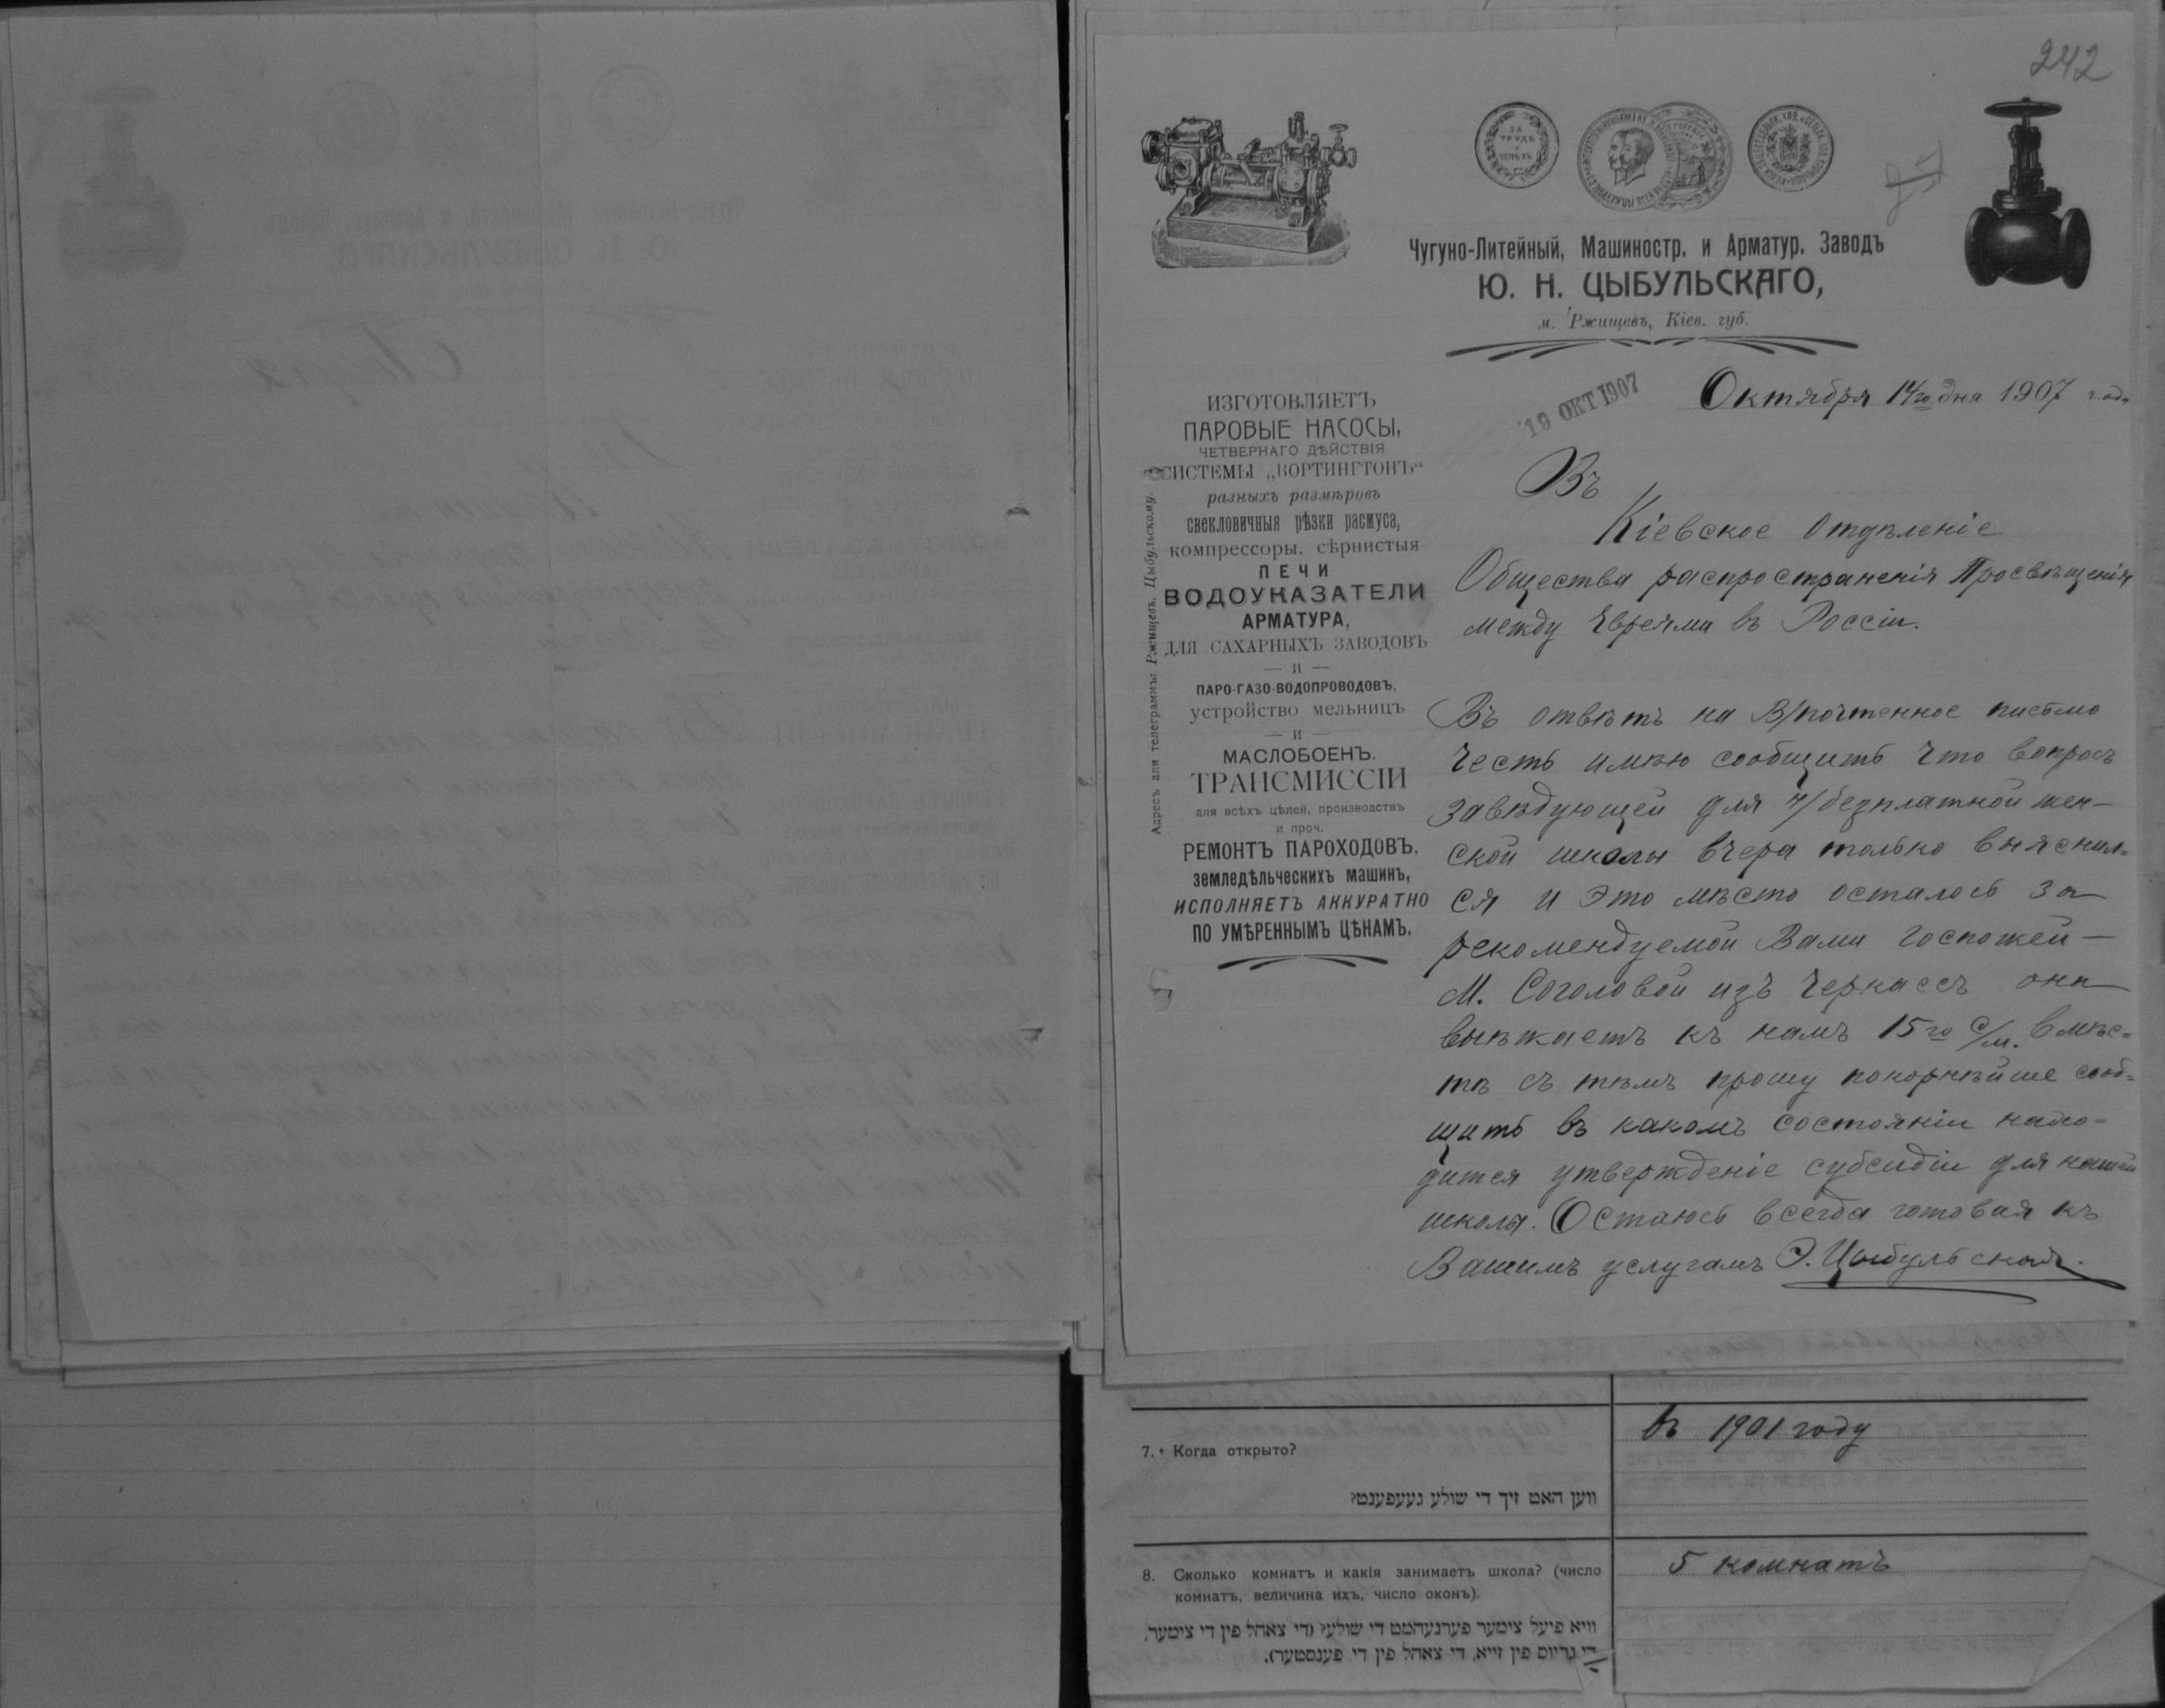 242
ЗА
ТРУДЪ
И
УСПѢХЪ
Чугуно-Литейный, Машиностр. и Арматур. Заводъ
Ю. Н. ЦЫБУЛЬСКАГО,
м. Ржищевъ, Кіев. губ.
19 ОКТ 1907
Октября 14го дня 1907 года
ИЗГОТОВЛЯЕТЪ
ПАРОВЫЕ НАСОСЫ,
ЧЕТВЕРНАГО ДѢЙСТВІЯ
СИСТЕМЫ „ВОРТИНГТОНЪ“
разныхъ размѣровъ
свекловичныя рѣзки расмуса,
компрессоры, сѣрнистыя
ПЕЧИ
ВОДОУКАЗАТЕЛИ
АРМАТУРА,
ДЛЯ САХАРНЫХЪ ЗАВОДОВЪ
— И —
ПАРО-ГАЗО-ВОДОПРОВОДОВЪ,
устройство мельницъ
— И —
МАСЛОБОЕНЪ.
ТРАНСМИССІИ
для всѣхъ цѣлей, производствъ
и проч.
РЕМОНТЪ ПАРОХОДОВЪ,
земледѣльческихъ машинъ,
ИСПОЛНЯЕТЪ АККУРАТНО
ПО УМѢРЕННЫМЪ ЦѢНАМЪ.
Адресъ для телеграммъ: Ржищевъ, Цыбульскому.
Въ
Кіевское Отдѣленіе
Общества распространенія Просвѣщенія
между Евреями въ Россіи.
Въ отвѣтъ на В/почтенное письмо
честь имѣю сообщить что вопросъ
завѣдующей для н/безплатной жен-
ской школы вчера только выяснил-
ся и это мѣсто осталось за
рекомендуемой Вами госпожей —
М. Соголовой изъ Черкассъ она
выѣжаетъ къ намъ 15го с/м. вмѣс-
тѣ съ тѣмъ прошу покорнѣйше сооб-
щить въ какомъ состояніи нахо-
дится утвержденіе субсидіи для нашей
школы. Остаюсь всегда готовая къ
Вашимъ услугамъ Э. Цыбульская.
7. Когда открыто?
ווען האט זיך די שולע געעפענט?
въ 1901 году
8. Сколько комнатъ и какія занимаетъ школа? (число
комнатъ, величина ихъ, число оконъ).
וויא פיעל צימער פערנעהמט די שולע? (די צאהל פין די צימער,
די גרייס פין זייא, די צאהל פין די פענסטער).
5 комнатъ